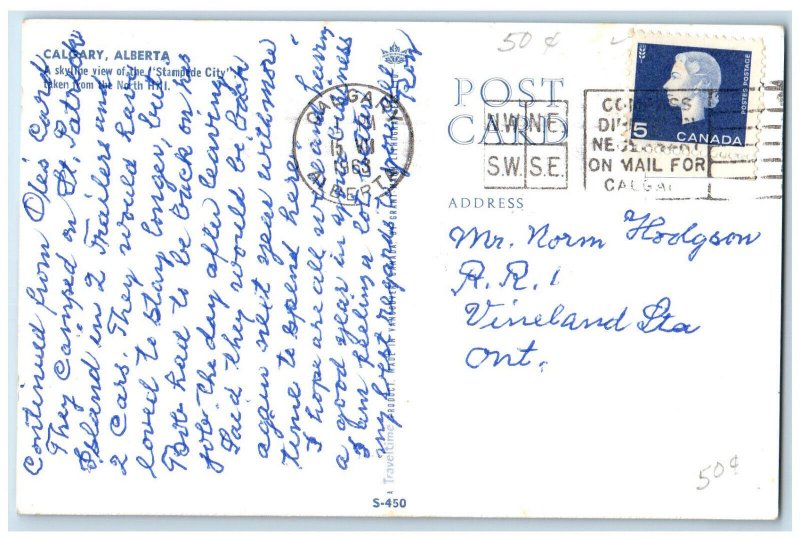 CALGARY, ALBERTA
A skyline view of the "Stampede City"
taken from the North Hill.
Continued from Ole's Card
They Camped on St. Patrick
Island in 2 Trailers and
2 Cars. They would have
loved to stay longer, but
Bob had to be back on his
job the day after leaving
Said they would be back
again next year with more
time to spend here.
I hope are all well and having
a good year in your business
I am feeling a lot better
and best regards
Roy
A Traveltime PRODUCT, MADE IN
S-450
50¢
POST
CARD
CALGARY
ALBERTA
N.W. N.E.
S.W. S.E.
NECESSARY
ON MAIL FOR
CALGARY
5
CANADA
POSTES POSTAGE
ADDRESS
Mr. Norm Hodgson
R.R. 1
Vineland Sta
Ont.
50¢